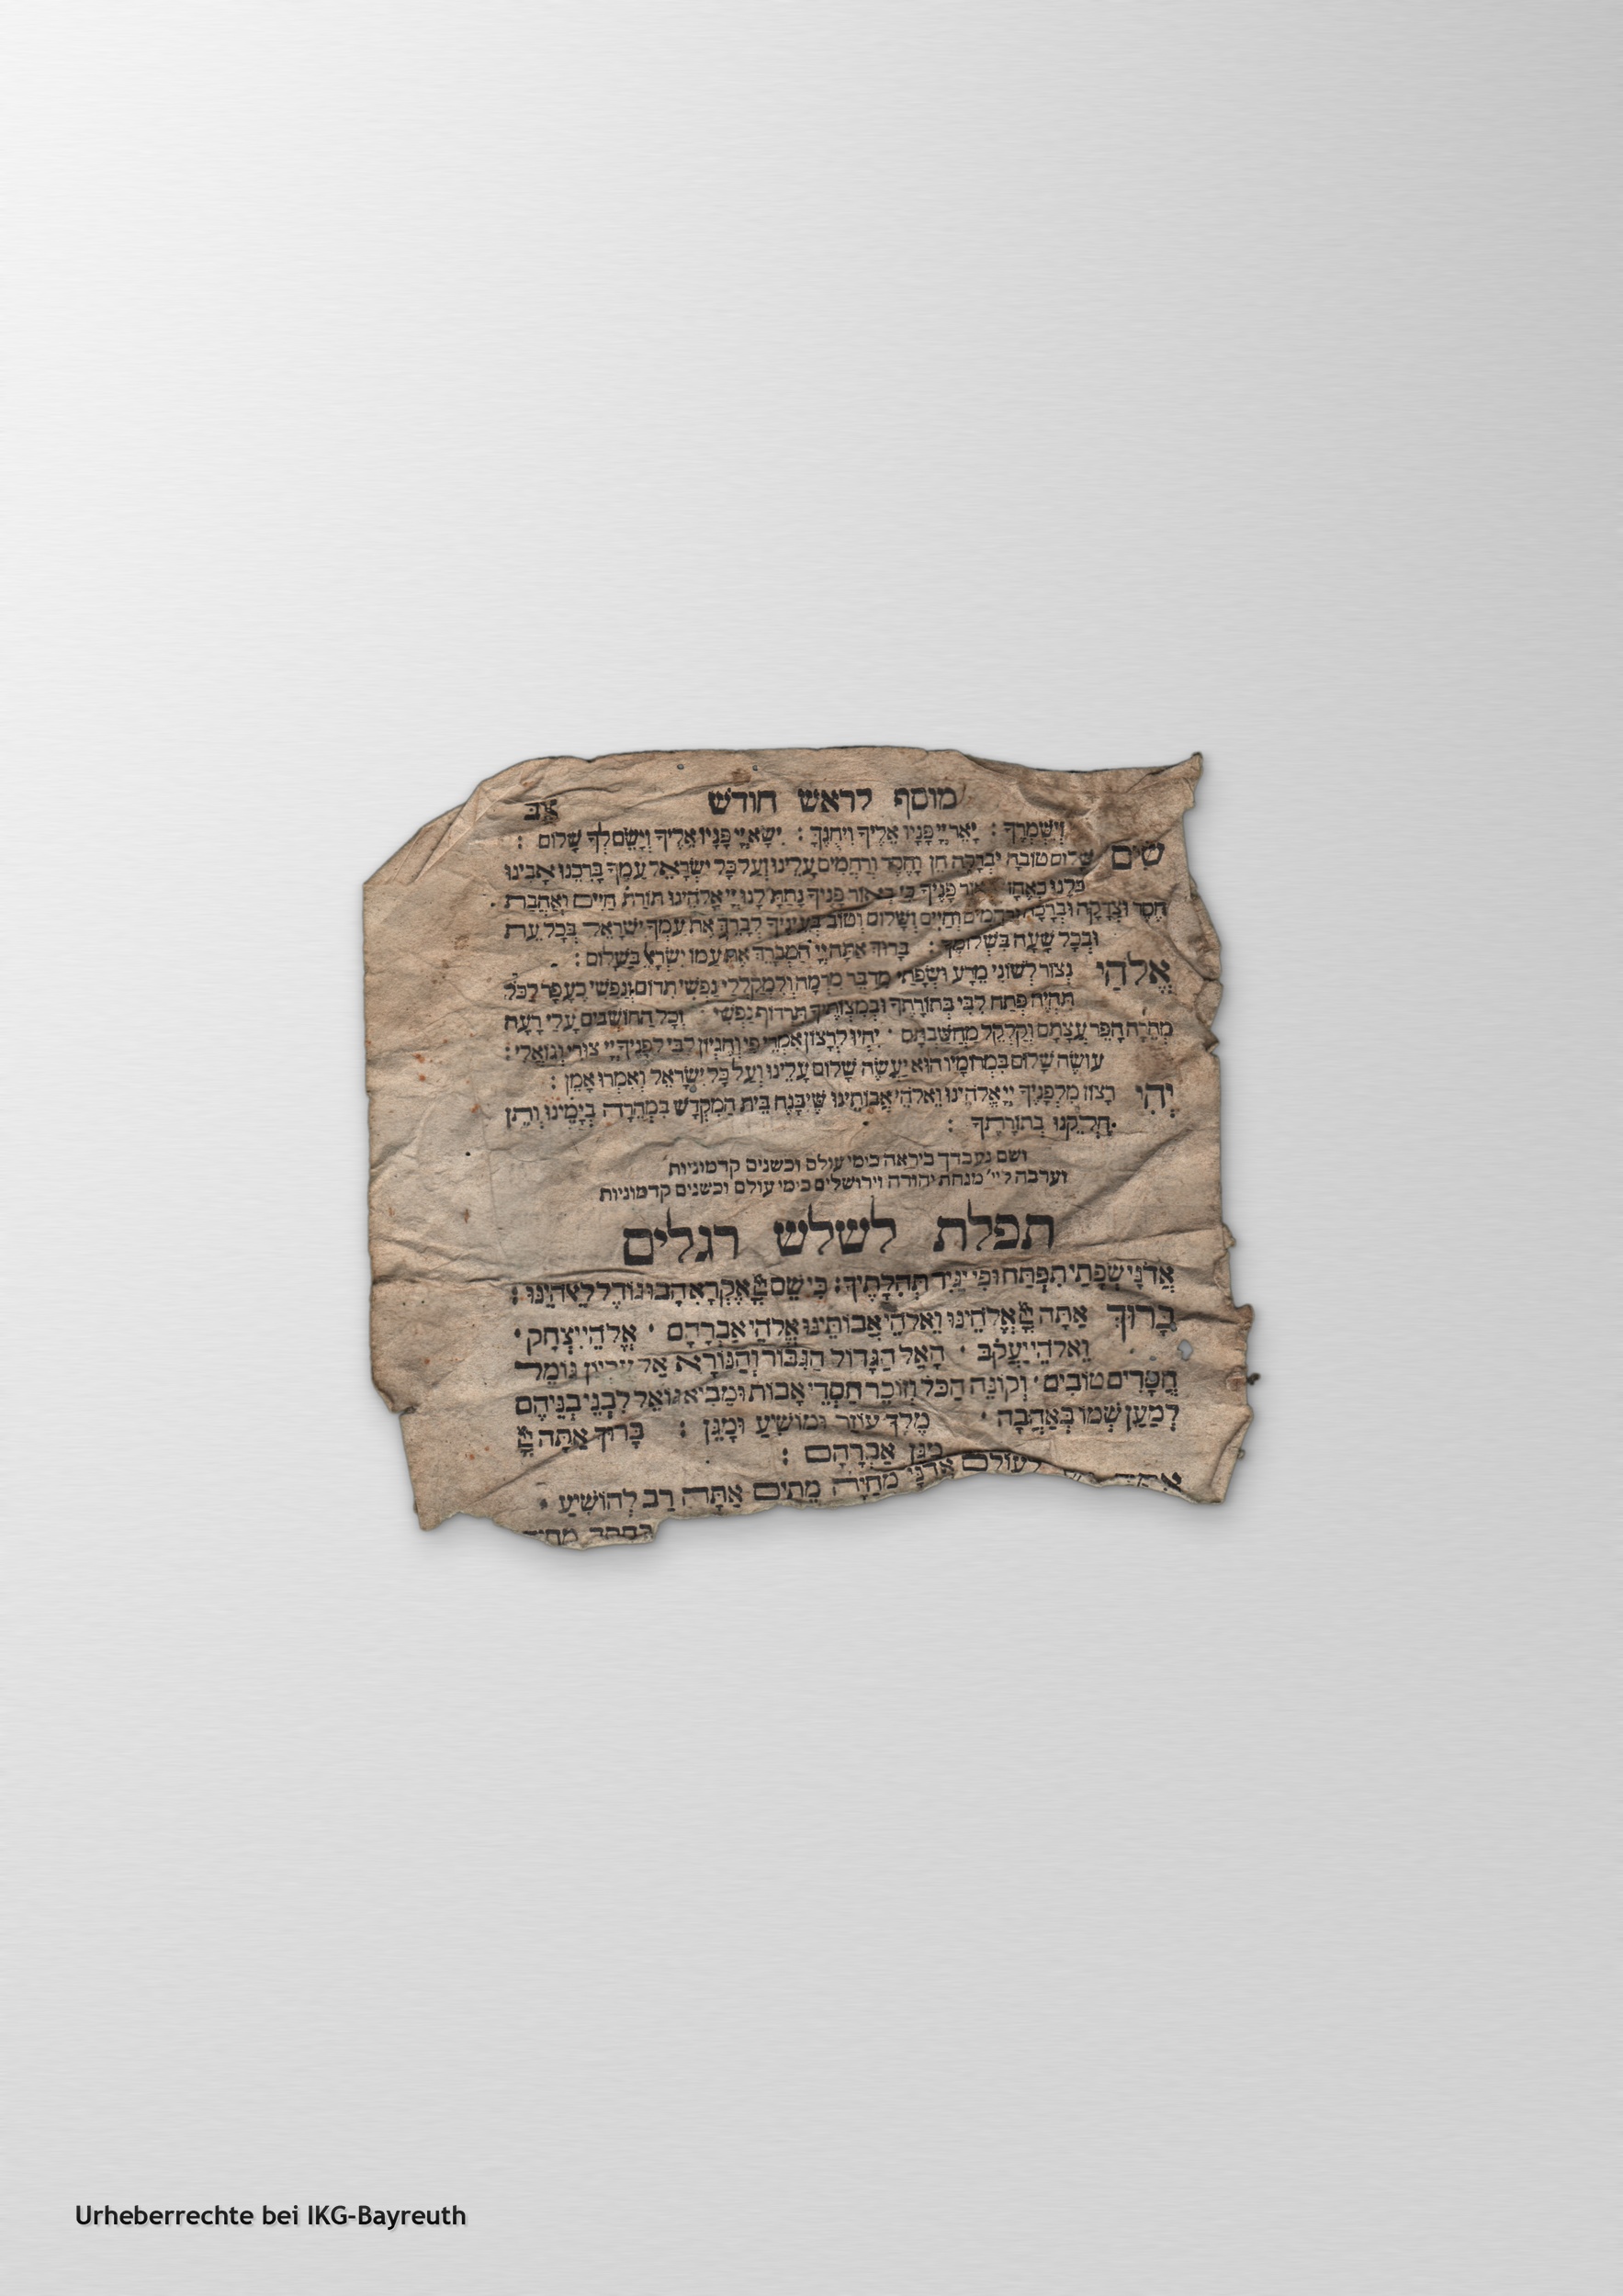 מוסף לראש חודש צב
וְיִשְׁמְרֶךָ : יָאֵר יְיָ פָּנָיו אֵלֶיךָ וִיחֻנֶּךָּ : יִשָּׂא יְיָ פָּנָיו אֵלֶיךָ וְיָשֵׂם לְךָ שָׁלוֹם :
שִׂים שָׁלוֹם טוֹבָה וּבְרָכָה חֵן וָחֶסֶד וְרַחֲמִים עָלֵינוּ וְעַל כָּל יִשְׂרָאֵל עַמֶּךָ בָּרְכֵנוּ אָבִינוּ
כֻּלָּנוּ כְּאֶחָד פָּנֶיךָ כִּי בְאוֹר פָּנֶיךָ נָתַתָּ לָּנוּ יְיָ אֱלֹהֵינוּ תּוֹרַת חַיִּים וְאַהֲבַת
חֶסֶד וּצְדָקָה וּבְרָכָה וְרַחֲמִים וְחַיִּים וְשָׁלוֹם וְטוֹב בְּעֵינֶיךָ לְבָרֵךְ אֶת עַמְּךָ יִשְׂרָאֵל בְּכָל עֵת
וּבְכָל שָׁעָה בִּשְׁלוֹמֶךָ : בָּרוּךְ אַתָּה יְיָ הַמְבָרֵךְ אֶת עַמּוֹ יִשְׂרָאֵל בַּשָּׁלוֹם :
אֱלֹהַי נְצוֹר לְשׁוֹנִי מֵרָע וּשְׂפָתַי מִדַּבֵּר מִרְמָה וְלִמְקַלְלַי נַפְשִׁי תִדּוֹם וְנַפְשִׁי כֶּעָפָר לַכֹּל
תִּהְיֶה פְּתַח לִבִּי בְּתוֹרָתֶךָ וּבְמִצְוֹתֶיךָ תִּרְדּוֹף נַפְשִׁי · וְכָל הַחוֹשְׁבִים עָלַי רָעָה
מְהֵרָה הָפֵר עֲצָתָם וְקַלְקֵל מַחֲשַׁבְתָּם · יִהְיוּ לְרָצוֹן אִמְרֵי פִי וְהֶגְיוֹן לִבִּי לְפָנֶיךָ יְיָ צוּרִי וְגוֹאֲלִי :
עוֹשֶׂה שָׁלוֹם בִּמְרוֹמָיו הוּא יַעֲשֶׂה שָׁלוֹם עָלֵינוּ וְעַל כָּל יִשְׂרָאֵל וְאִמְרוּ אָמֵן :
יְהִי רָצוֹן מִלְּפָנֶיךָ יְיָ אֱלֹהֵינוּ וֵאלֹהֵי אֲבוֹתֵינוּ שֶׁיִּבָּנֶה בֵּית הַמִּקְדָּשׁ בִּמְהֵרָה בְיָמֵינוּ וְתֵן
חֶלְקֵנוּ בְּתוֹרָתֶךָ :
ושם נעבדך ביראה כימי עולם וכשנים קדמוניות
וערבה ליי׳ מנחת יהודה וירושלים כימי עולם וכשנים קדמוניות
תפלת לשלש רגלים
אֲדֹנָי שְׂפָתַי תִּפְתָּח וּפִי יַגִּיד תְּהִלָּתֶךָ : כִּי שֵׁם יְיָ אֶקְרָא הָבוּ גוֹדֶל לֵאלֹהֵינוּ :
בָּרוּךְ אַתָּה יְיָ אֱלֹהֵינוּ וֵאלֹהֵי אֲבוֹתֵינוּ אֱלֹהֵי אַבְרָהָם · אֱלֹהֵי יִצְחָק ·
וֵאלֹהֵי יַעֲקֹב · הָאֵל הַגָּדוֹל הַגִּבּוֹר וְהַנּוֹרָא אֵל עֶלְיוֹן גּוֹמֵל
חֲסָדִים טוֹבִים · וְקוֹנֵה הַכֹּל וְזוֹכֵר חַסְדֵי אָבוֹת וּמֵבִיא גוֹאֵל לִבְנֵי בְנֵיהֶם
לְמַעַן שְׁמוֹ בְּאַהֲבָה · מֶלֶךְ עוֹזֵר וּמוֹשִׁיעַ וּמָגֵן : בָּרוּךְ אַתָּה יְיָ
מָגֵן אַבְרָהָם :
לְעוֹלָם אֲדֹנָי מְחַיֵּה מֵתִים אַתָּה רַב לְהוֹשִׁיעַ ·
Urheberrechte bei IKG-Bayreuth